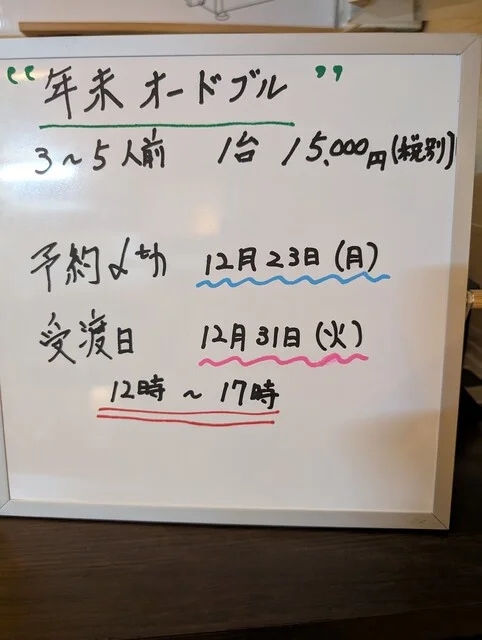 “年末オードブル”
3~5人前 1台 15,000円(税別)
予約〆切 12月23日(月)
受渡日 12月31日(火)
12時~17時